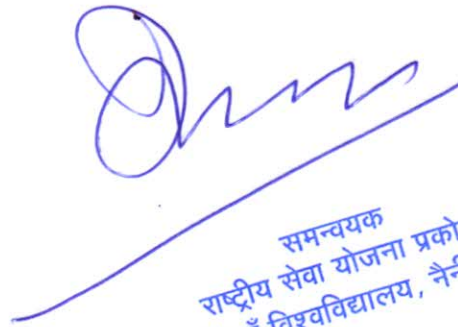 समन्वयक
राष्ट्रीय सेवा योजना
विश्वविद्यालय,